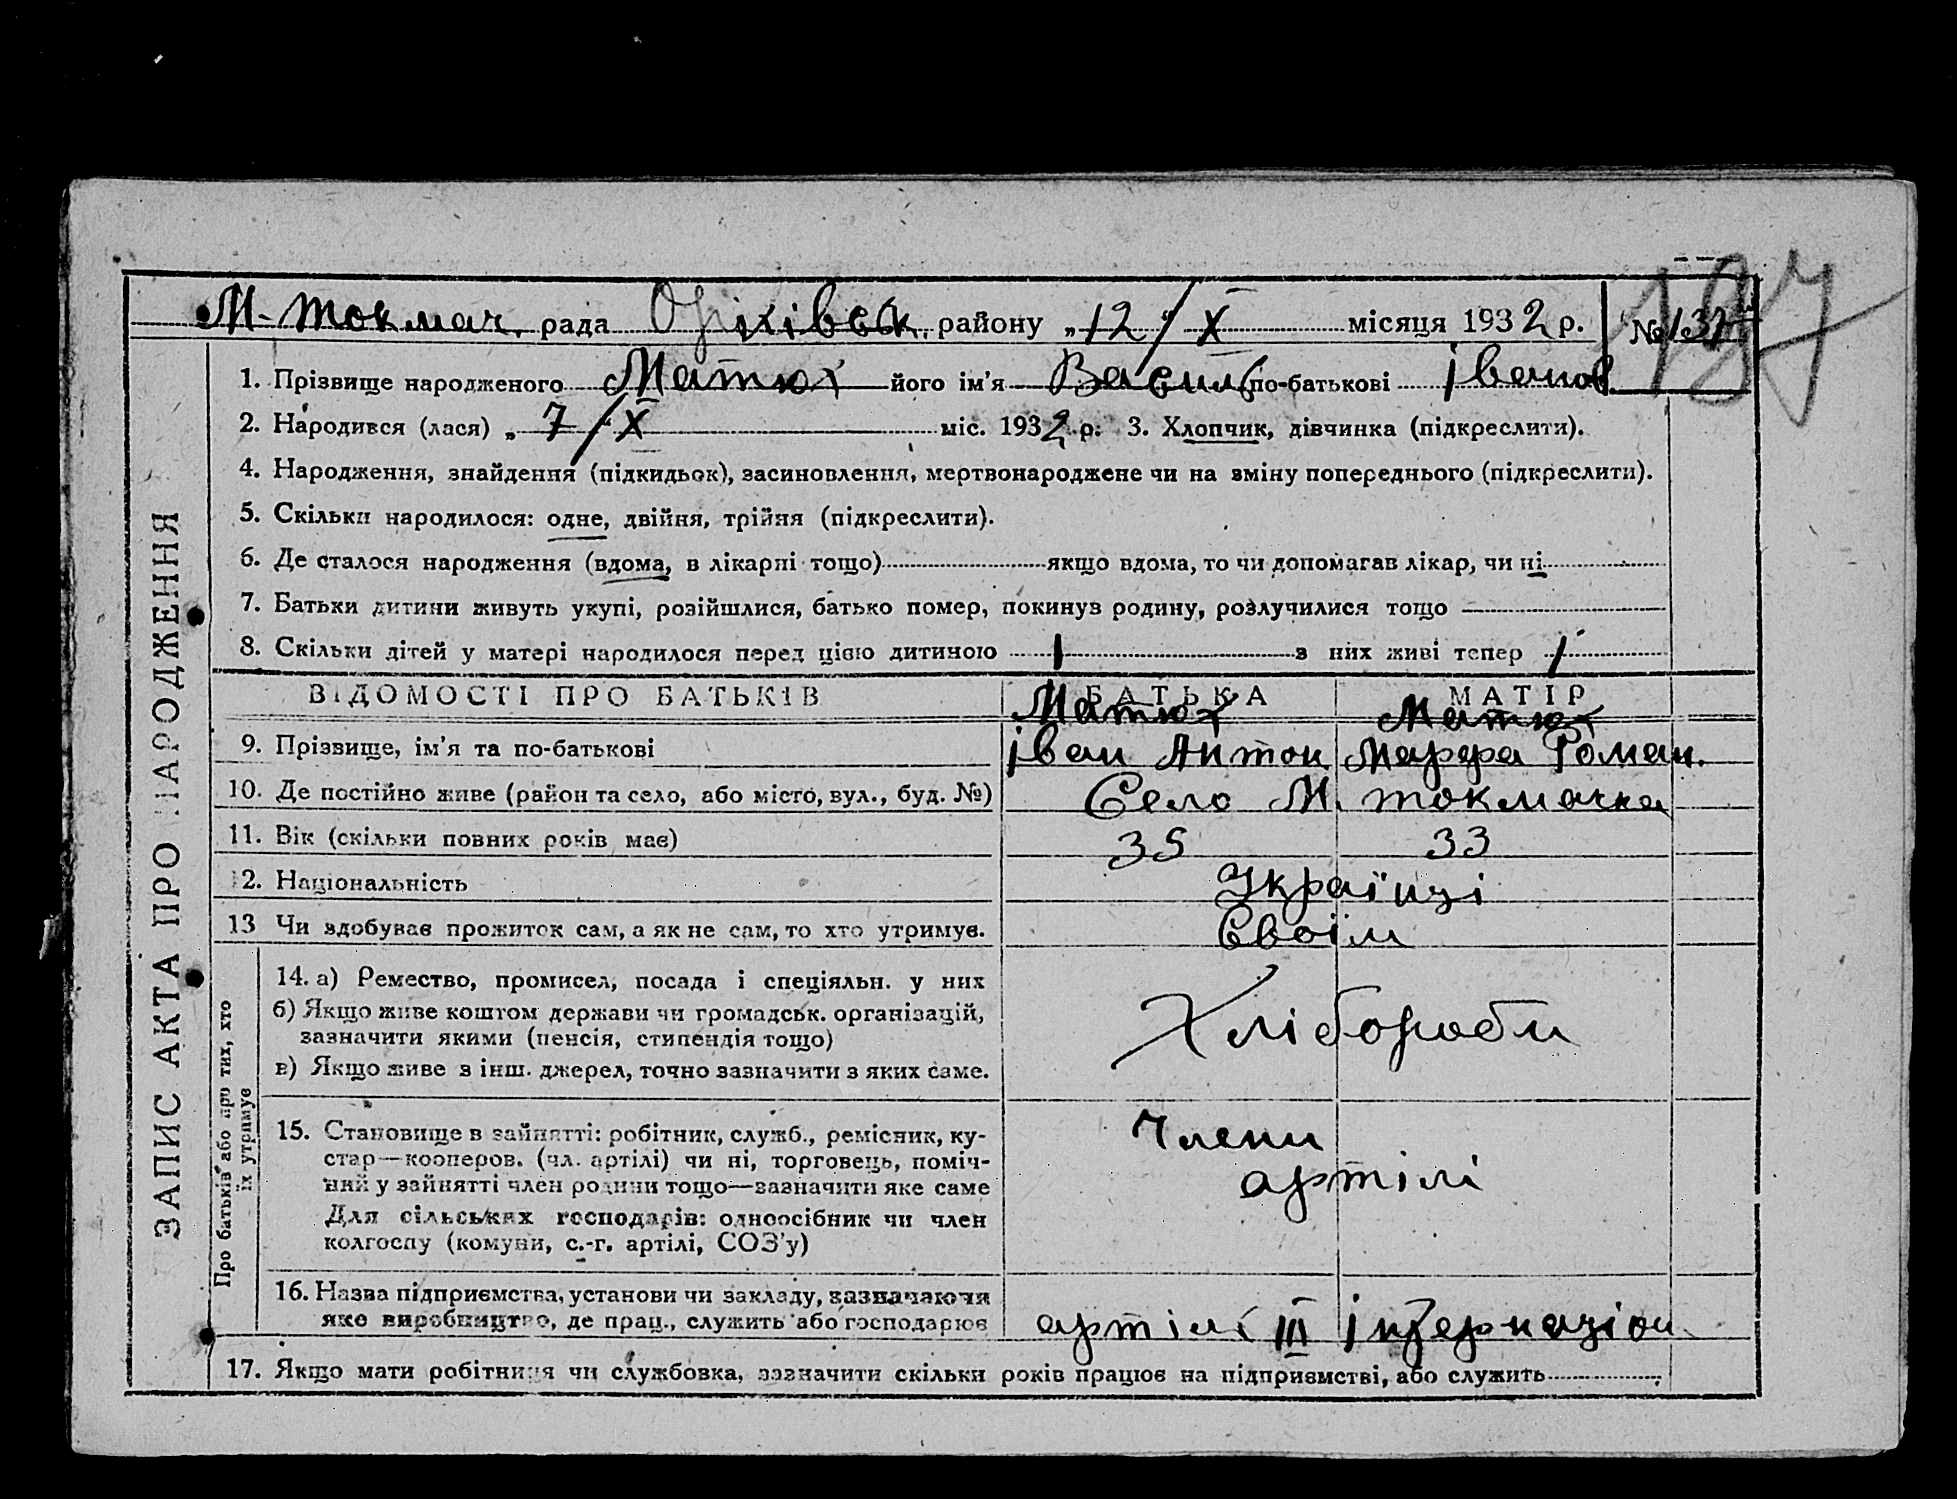 М-токмач. рада Оріхівськ. району „12“/X місяця 1932 р. №137
197
1. Прізвище народженого Матюх його ім’я Василь по-батькові Іванов
2. Народився (лася) „7/X міс. 1932 р. 3. Хлопчик, дівчинка (підкреслити).
4. Народження, знайдення (підкидьок), засиновлення, мертвонароджене чи на зміну попереднього (підкреслити).
5. Скільки народилося: одне, двійня, трійня (підкреслити).
6. Де сталося народження (вдома, в лікарні тощо) якщо вдома, то чи допомагав лікар, чи ні
7. Батьки дитини живуть укупі, розійшлися, батько помер, покинув родину, розлучилися тощо
8. Скільки дітей у матері народилося перед цією дитиною 1 з них живі тепер 1
ВІДОМОСТІ ПРО БАТЬКІВ БАТЬКА МАТІР
Матюх Матюх
9. Прізвище, ім’я та по-батькові Іван Антон Марфа Роман.
10. Де постійно живе (район та село, або місто, вул., буд. №) Село М. токмачка
11. Вік (скільки повних років має) 35 33
12. Національність Українці
13 Чи здобував прожиток сам, а як не сам, то хто утримує. Своїм
14. а) Ремество, промисел, посада і спеціяльн. у них
б) Якщо живе коштом держави чи громадськ. організацій, Хлібороби
зазначити якими (пенсія, стипендія тощо)
в) Якщо живе з інш. джерел, точно зазначити з яких саме.
15. Становище в зайнятті: робітник, служб., ремісник, ку- Члени
стар—кооперов. (чл. артілі) чи ні, торговець, поміч-
ний у зайнятті член родини тощо—зазначити яке саме артілі
Для сільських господарів: одноосібник чи член
колгоспу (комуни, с.-г. артілі, СОЗ’у)
16. Назва підприємства, установи чи закладу, зазначаючи
яке виробництво, де прац., служить або господарює артіль III Інтернаціон
17. Якщо мати робітниця чи службовка, зазначити скільки років працює на підприємстві, або служить
ЗАПИС АКТА ПРО НАРОДЖЕННЯ
Про батьків або про тих, хто
їх утримує